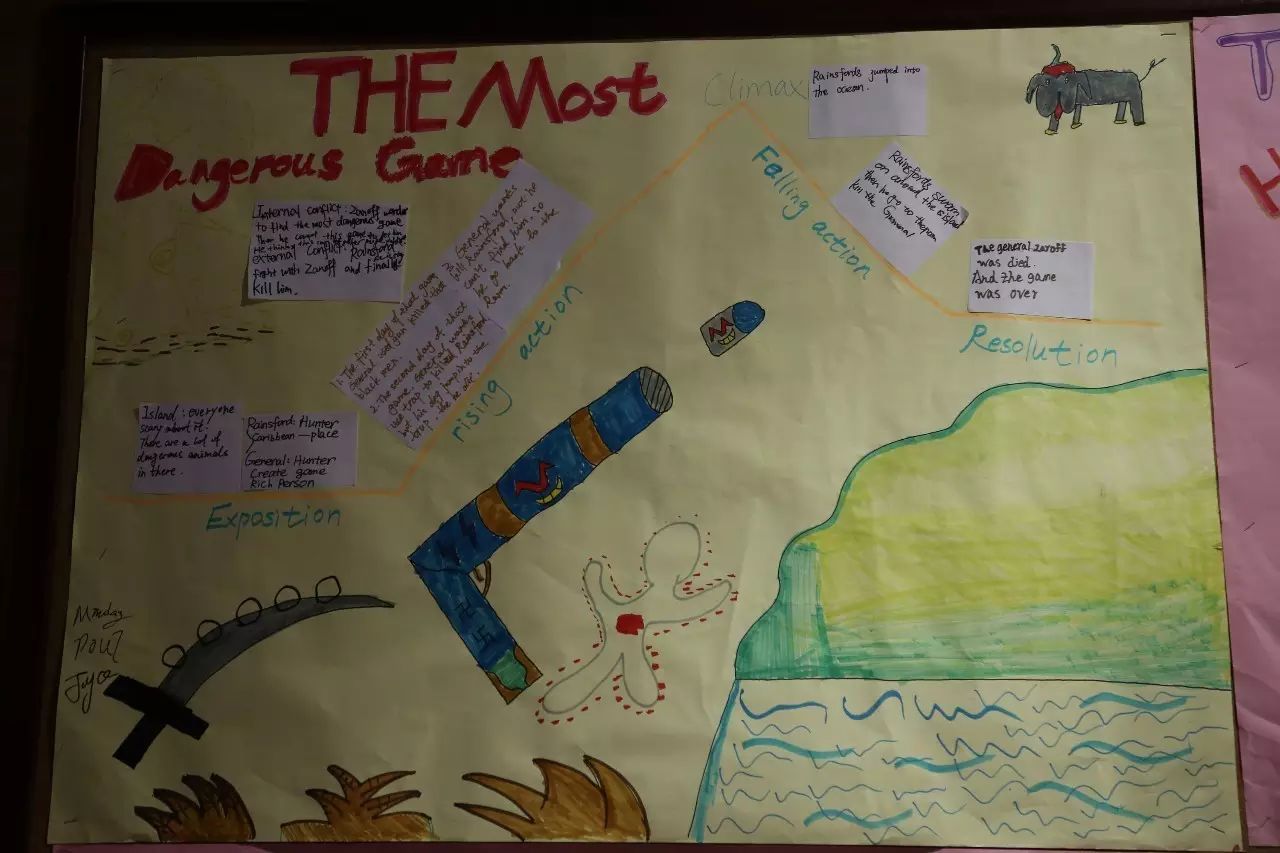 THE Most
Dangerous Game
Climax
Rainsfords jumped into
the ocean.
Falling action
Rainsfords swom
on around the island
then he go to the
kill the General
The general Zaroff
was died.
And the game
was over
Resolution
Internal conflict: Zaroff
to find the most dangerous game
external conflict: Rainsford
fight with Zaroff and finally
kill him.
1. The first day of
General used gun killed
black men.
2. The second day of
game General wants
use trap to killed Rainsford
but his dog jump into the
trap
3. General wants
kill Rainsford, but he
can't find him, so
he go back to the
Room.
rising action
Island: everyone
scary about it!
There are a lot of
dangerous animals
in there.
Rainsford: Hunter
Caribbean — place
General: Hunter
Create game
Rich Person
Exposition
Paul
Joyce
T
H